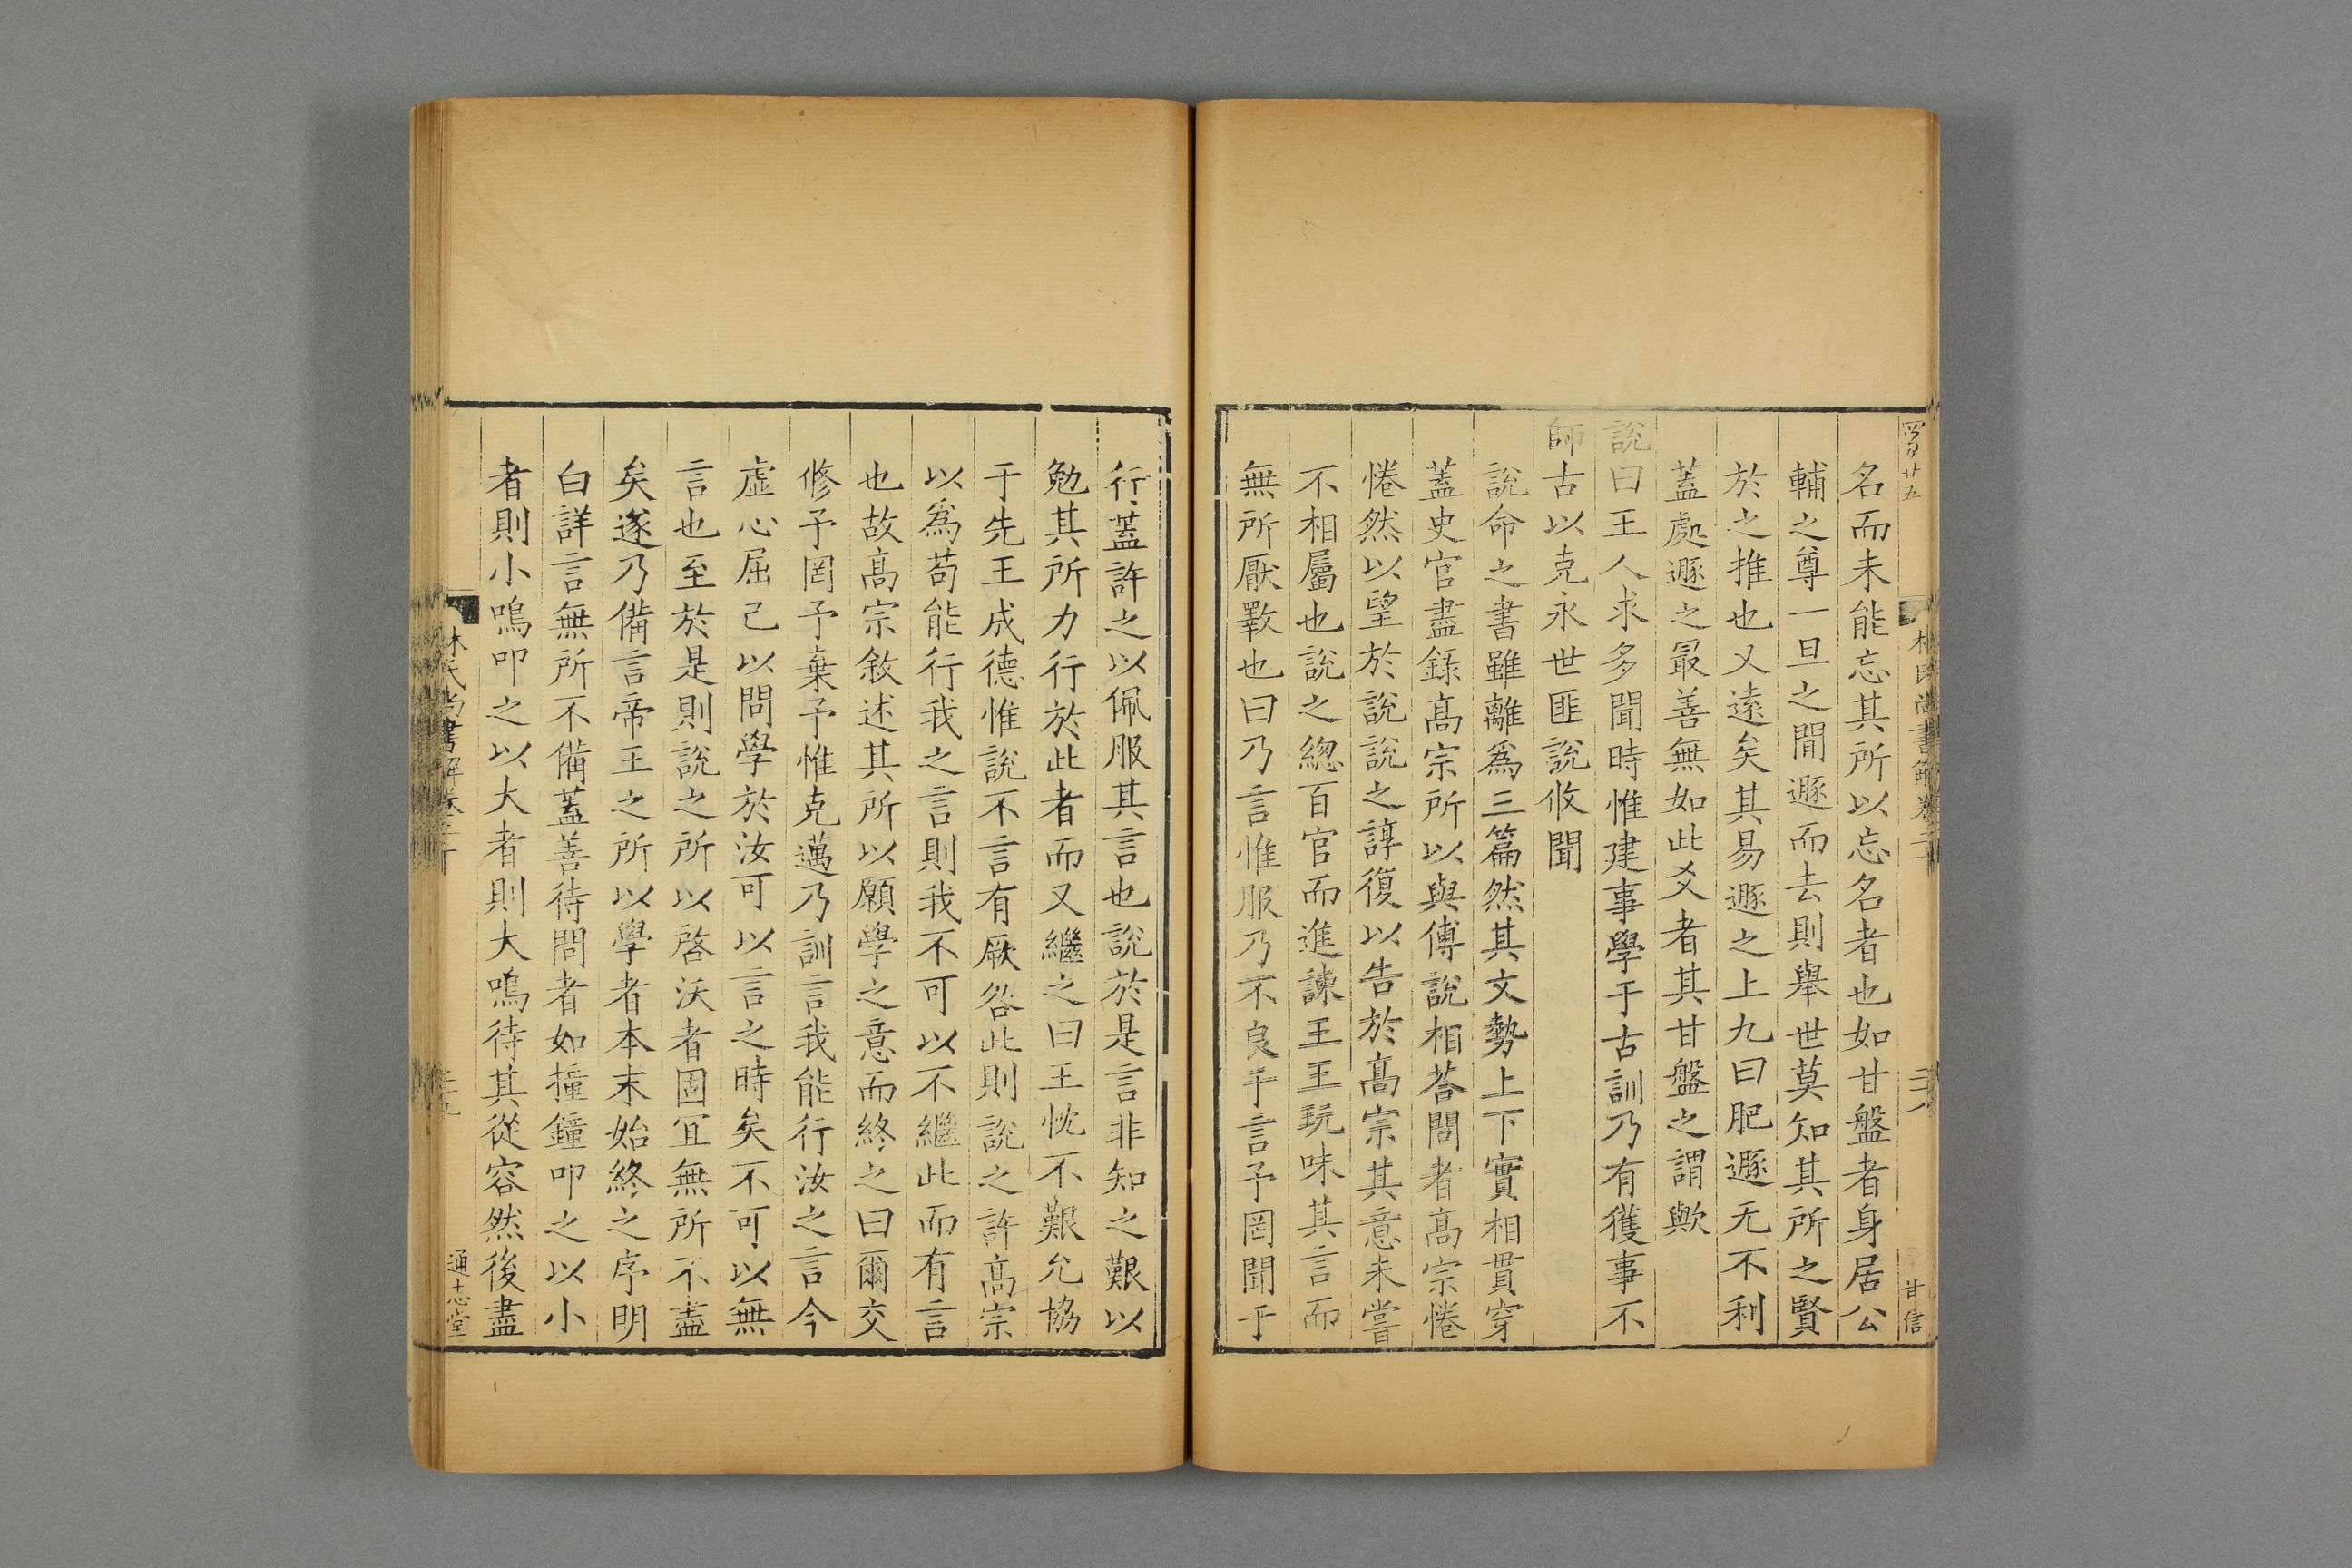 名而未能忘其所以忘名者也如甘盤者身居公
輔之尊一旦之閒遯而去則舉世莫知其所之賢
於之推也又遠矣其易遯之上九曰肥遯无不利
蓋處遯之最善無如此爻者其甘盤之謂歟
說曰王人求多聞時惟建事學于古訓乃有獲事不
師古以克永世匪說攸聞
說命之書雖離爲三篇然其文勢上下實相貫穿
蓋史官盡錄髙宗所以與傅說相荅問者髙宗惓
惓然以望於說說之諄復以告於髙宗其意未嘗
不相屬也說之緫百官而進諫王王玩味其言而
無所厭斁也曰乃言惟服乃不良于言予罔聞于
行蓋許之以佩服其言也說於是言非知之艱以
勉其所力行於此者而又繼之曰王忱不艱允協
于先王成德惟說不言有厥咎此則說之許髙宗
以爲苟能行我之言則我不可以不繼此而有言
也故髙宗敘述其所以願學之意而終之曰爾交
修予罔予棄予惟克邁乃訓言我能行汝之言今
虛心屈己以問學於汝可以言之時矣不可以無
言也至於是則說之所以啓沃者固冝無所不盡
矣遂乃備言帝王之所以學者本末始終之序明
白詳言無所不備蓋善待問者如撞鐘叩之以小
者則小鳴叩之以大者則大鳴待其從容然後盡
林氏尚書解卷二十
通志堂
甘信